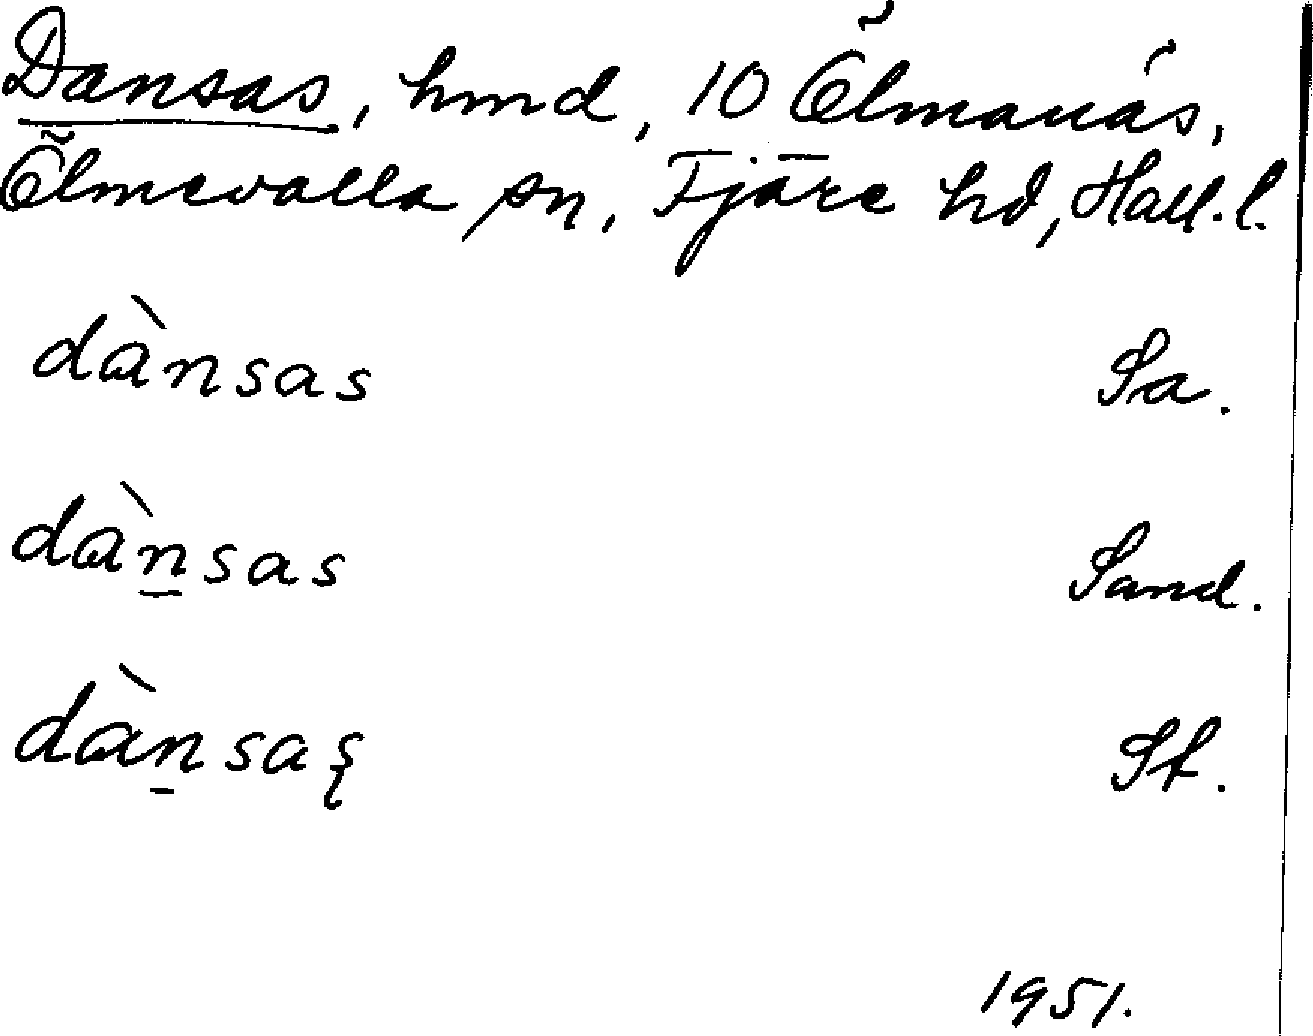 Dansas, hmd, 10 Ölmanäs,
Ölmevalla sn, Fjäre hd, Hall. l.
dànsas Sa.
dàn̲sas Sand.
dàn̲sas̨ St.
1951.